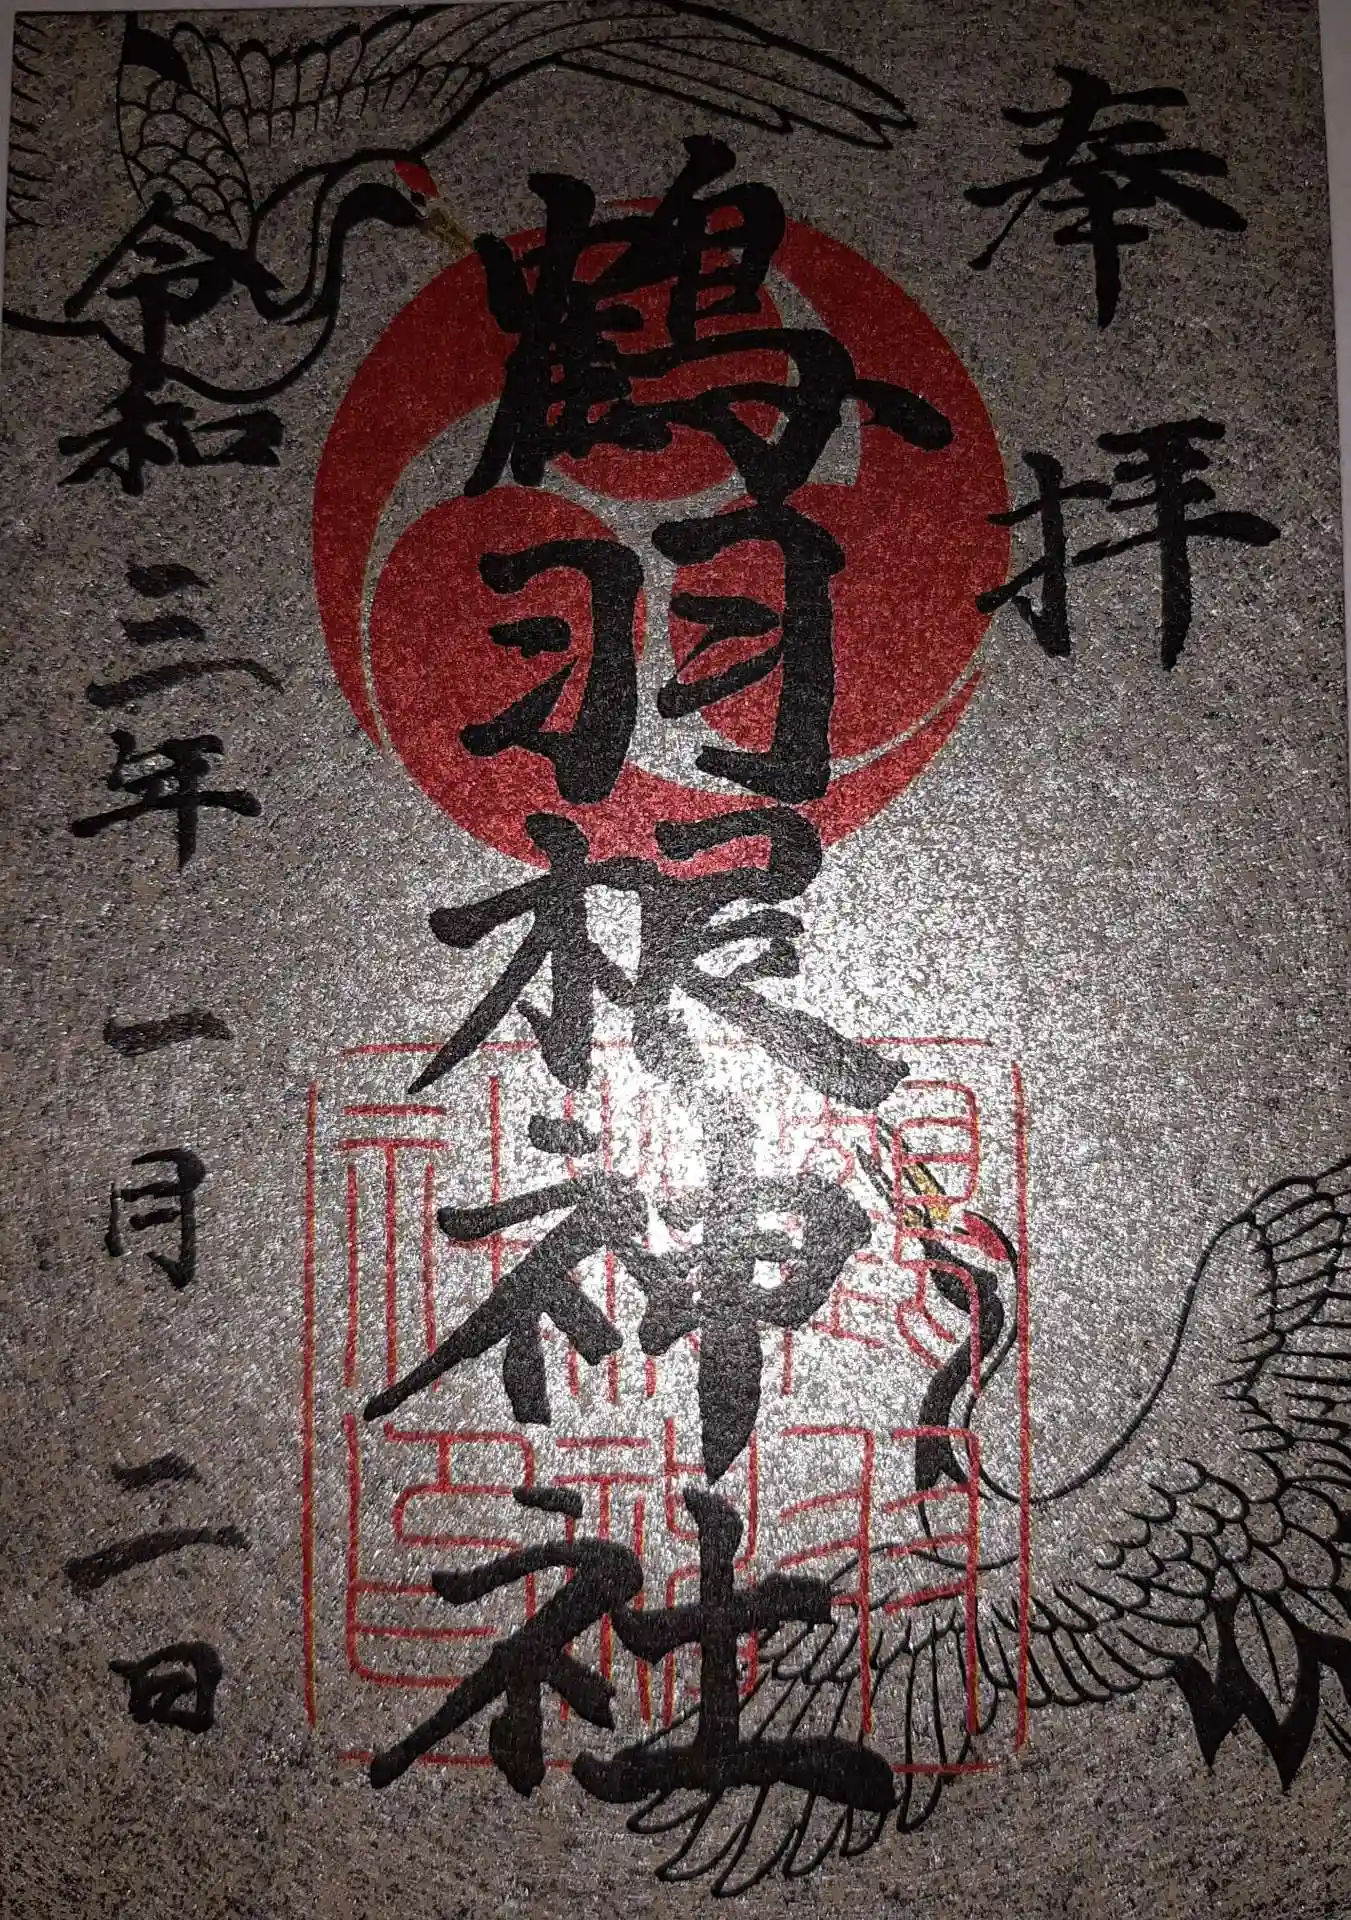 奉拝
鶴羽根神社
令和三年一月二日
鶴羽根神社之印